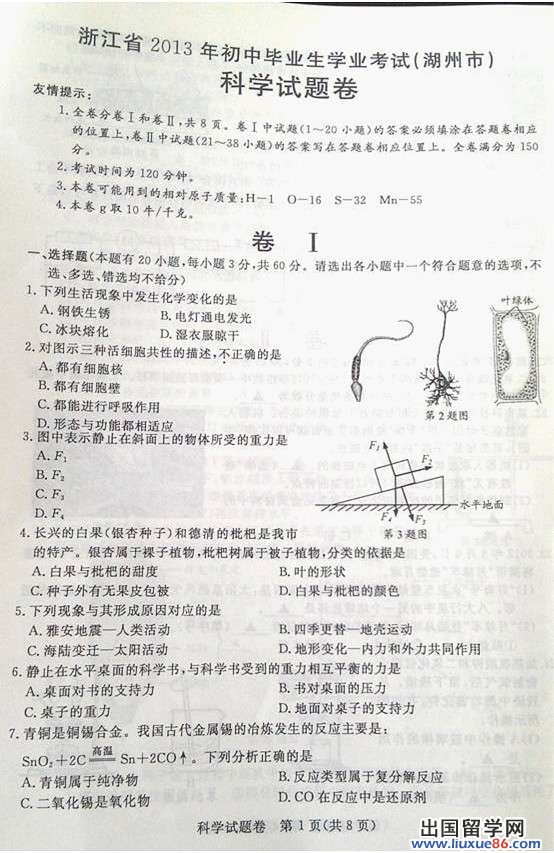 浙江省 2013 年初中毕业生学业考试(湖州市)
科学试题卷
友情提示:
1.全卷分卷Ⅰ和卷Ⅱ,共 8 页。卷Ⅰ中试题(1～20 小题)的答案必须填涂在答题卷相应
的位置上,卷Ⅱ中试题(21～38 小题)的答案写在答题卷相应位置上。全卷满分为 150
分。
2.考试时间为 120 分钟。
3.本卷可能用到的相对原子质量:H-1 O-16 S-32 Mn-55
4.本卷 g 取 10 牛/千克。
卷 Ⅰ
一、选择题(本题有 20 小题,每小题 3 分,共 60 分。请选出各小题中一个符合题意的选项,不
选、多选、错选均不给分)
1.下列生活现象中发生化学变化的是
A.钢铁生锈 B.电灯通电发光
C.冰块熔化 D.湿衣服晾干
2.对图示三种活细胞共性的描述,不正确的是
A.都有细胞核
B.都有细胞壁
C.都能进行呼吸作用
D.形态与功能都相适应
叶绿体
第 2 题图
3.图中表示静止在斜面上的物体所受的重力是
A.F₁
B.F₂
C.F₃
D.F₄
F₁
F₂
F₄
F₃
水平地面
第 3 题图
4.长兴的白果(银杏种子)和德清的枇杷是我市
的特产。银杏属于裸子植物,枇杷树属于被子植物,分类的依据是
A.白果与枇杷的甜度 B.叶的形状
C.种子外有无果皮包被 D.白果与枇杷的颜色
5.下列现象与其形成原因对应的是
A.雅安地震—人类活动 B.四季更替—地壳运动
C.海陆变迁—太阳活动 D.地形变化—内力和外力共同作用
6.静止在水平桌面的科学书,与科学书受到的重力相互平衡的力是
A.桌面对书的支持力 B.书对桌面的压力
C.桌子的重力 D.地面对桌子的支持力
7.青铜是铜锡合金。我国古代金属锡的冶炼发生的反应主要是:
SnO₂+2C 高温 Sn+2CO↑。下列分析正确的是
A.青铜属于纯净物 B.反应类型属于复分解反应
C.二氧化锡是氧化物 D.CO 在反应中是还原剂
科学试题卷 第 1 页(共 8 页)
出国留学网
www.liuxue86.com